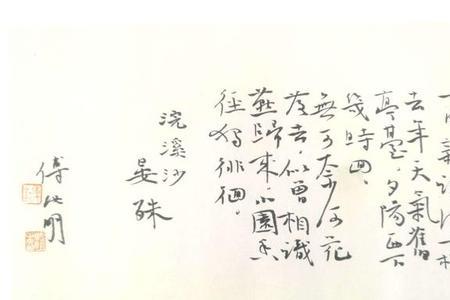 去年天氣舊
亭臺。夕陽西下
幾時回。
無可奈何花
落去。似曾相識
燕歸來。小園香
徑獨徘徊。
浣溪沙
晏殊